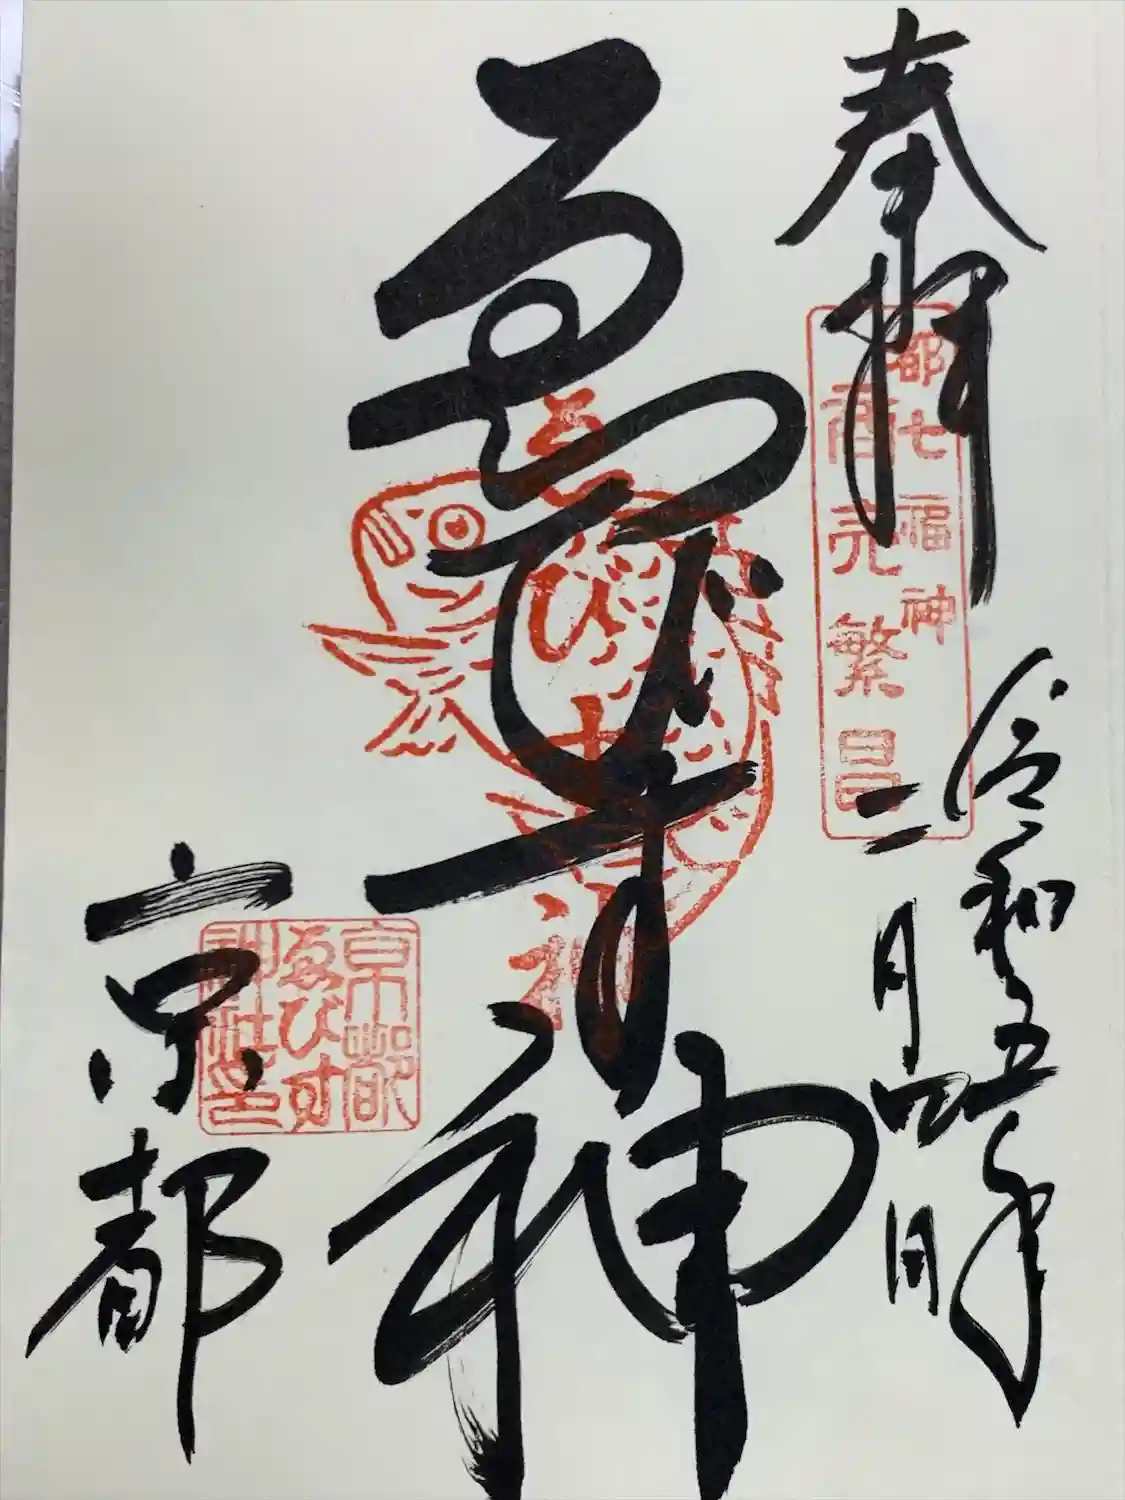 奉拝
都七福神
商売繁昌
令和五年
二月四日
ゑびす神
ゑびす神
京都
ゑびす
神社印
京都